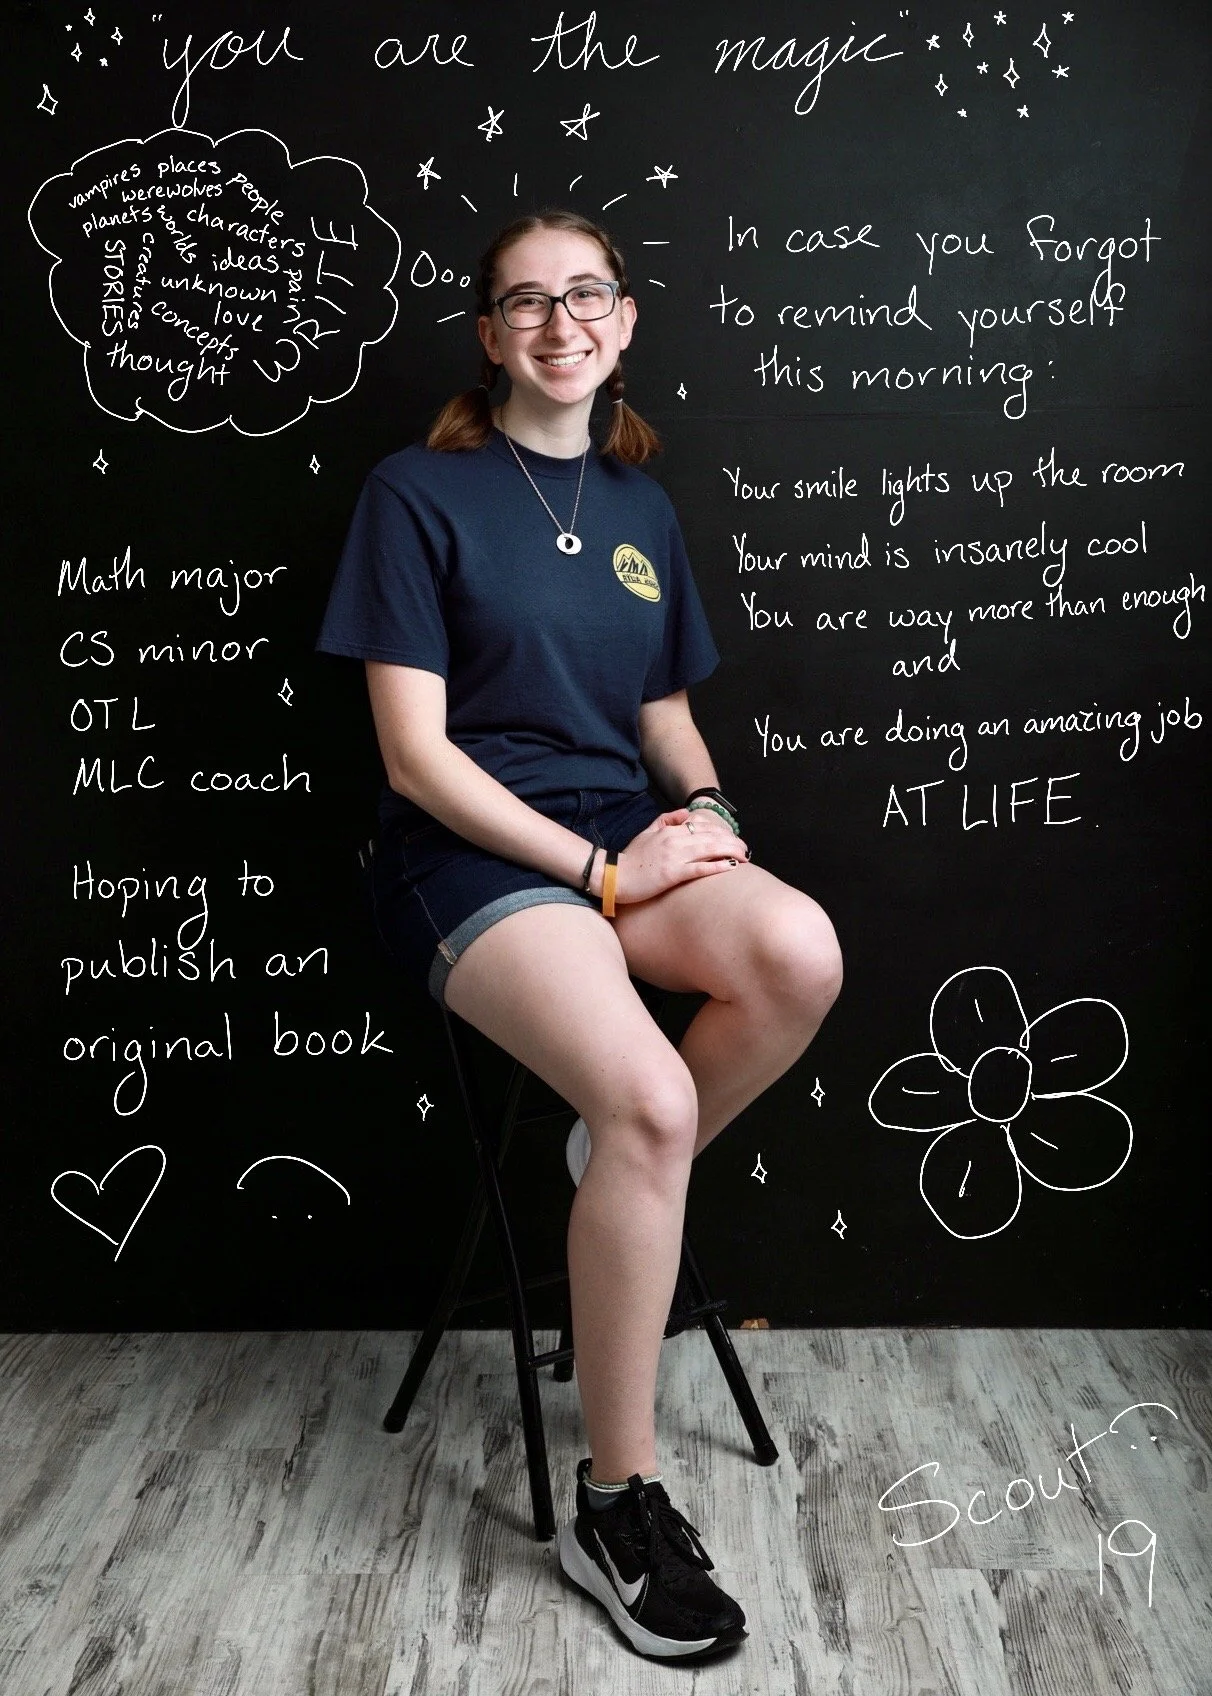 "you are the magic"
vampires places people
werewolves
planets & worlds characters
STORIES creatures ideas pain
unknown
love
concepts
thought
WRITE
In case you forgot
to remind yourself
this morning:
Your smile lights up the room
Your mind is insanely cool
You are way more than enough
and
You are doing an amazing job
AT LIFE.
Math major
CS minor
OTL
MLC coach
Hoping to
publish an
original book
Scout
19